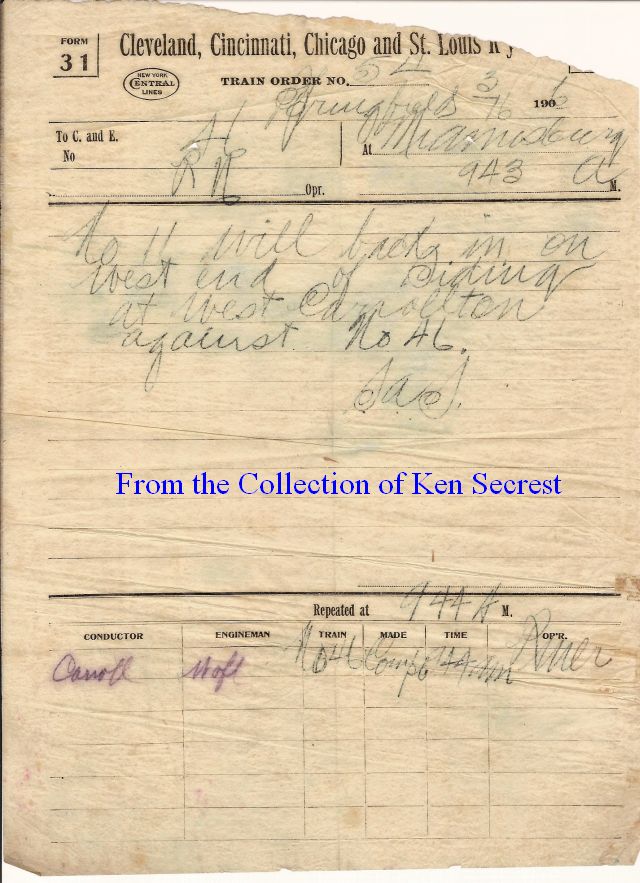 FORM
31
Cleveland, Cincinnati, Chicago and St. Louis R'y
NEW YORK
CENTRAL
LINES
TRAIN ORDER NO. 54
Springfield 3/16 190
To C. and E.
No 11
At Miamisburg
Opr. 943 A M.
No 11 will back in on
west end of siding
at West Carrollton
against No 46.
Repeated at 944 A M.
CONDUCTOR ENGINEMAN TRAIN MADE TIME OP'R.
Carroll No46 Comp 944 AM
From the Collection of Ken Secrest